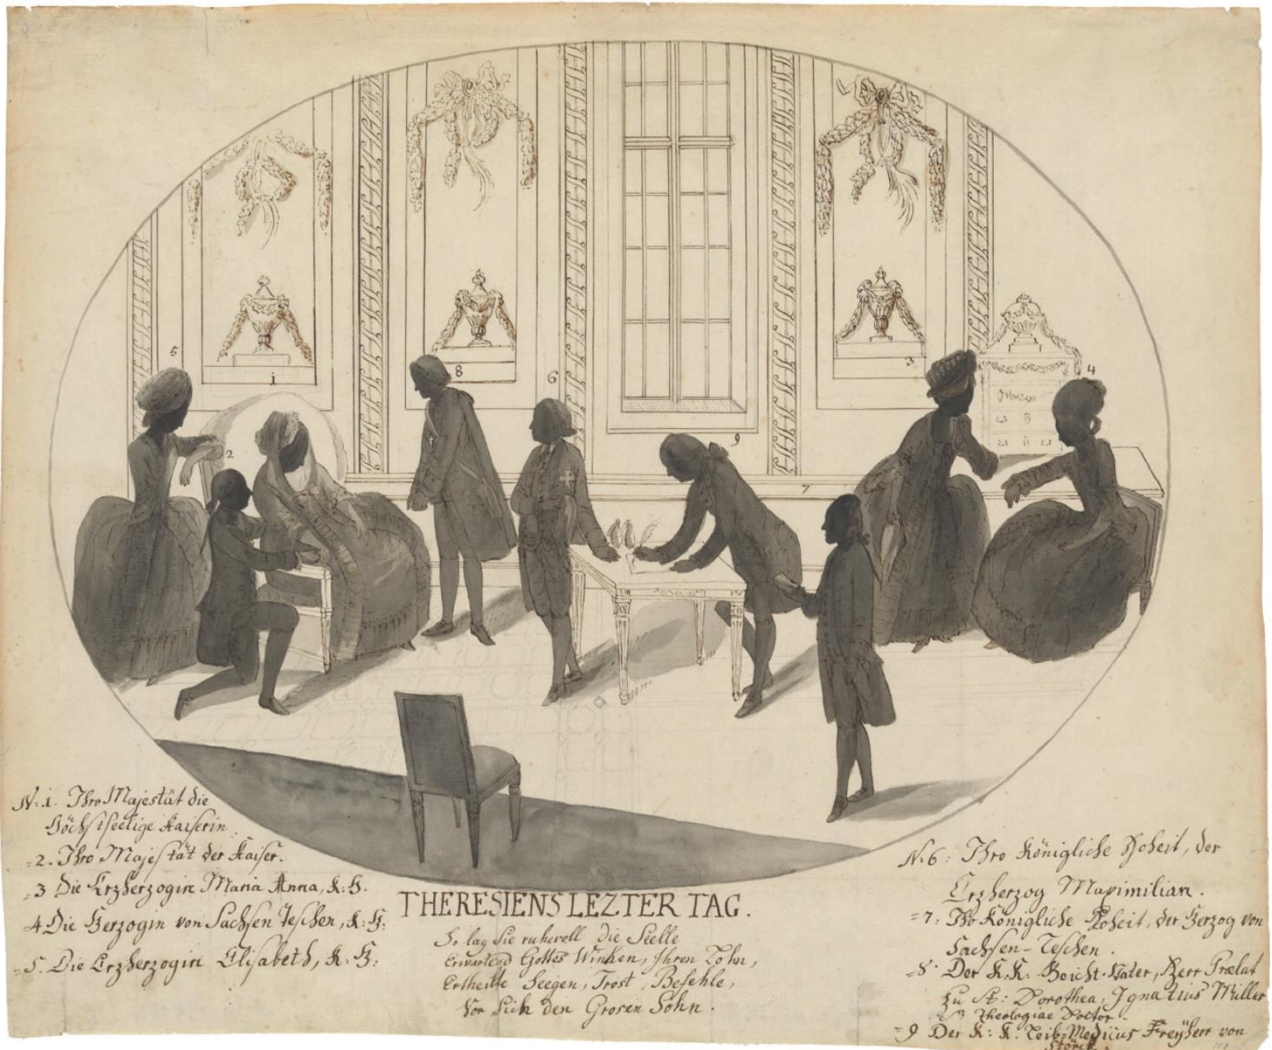 5
1
2
8
6
9
7
3
4
N: 1. Ihro Majestät die
Höchstseelige Kaiserin.
=2. Ihro Majestät der Kaiser.
=3 Die Erzherzogin Maria Anna, K: H.
4 Die Herzogin von Sachsen Teschen, K: H:
=5. Die Erzherzogin Elisabeth, K: H:
THERESIENS LEZTER TAG.
So lag Sie ruhevoll die Seelle
Erwartend Gottes Winken, Ihren Lohn,
Ertheilte Seegen, Trost, Befehle,
Vor Sich den Grosen Sohn.
N: 6: Ihro Königliche Hoheit, der
Erzherzog Maximilian.
=7: Ihro Königliche Hoheit, der Herzog von
Sachsen-Teschen.
=8: Der K.K. Beicht-Vater, Herr Prælat
zu St: Dorothea, Ignatius Müller
Theologiae Doctor.
=9 Der K: K. Leib-Medicus Freyherr von
Störk.